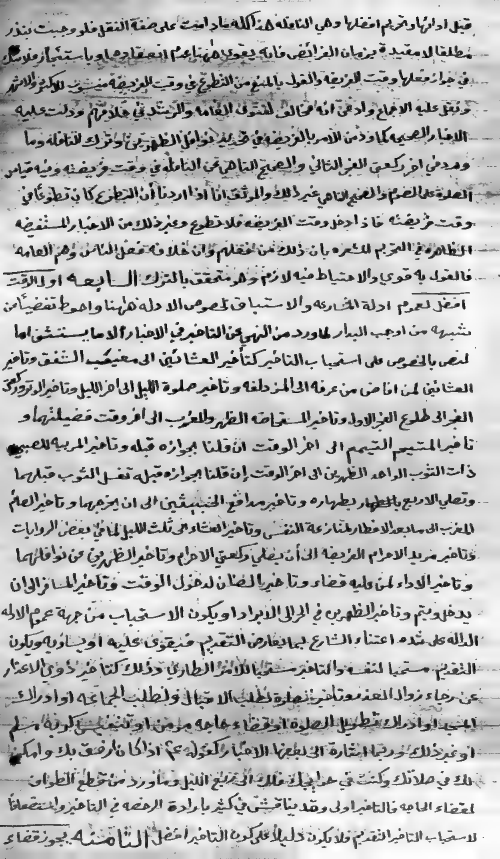 مطلقا لا مقيدة بزمان الفرائض فانه يقوى
في جواز فعلها وقت الفريضة والقول بالمنع من التطوع في وقت الفريضة
ونقل عليه الاجماع وادعى انه مخالف لفتوى العامة والرشد في خلافهم ودلت عليه
الاخبار الصحيحة كما ورد من الامر بالفريضة في تحديد نوافل الظهرين وترك النافلة وما
ورد في اخر ركعتي الفجر الثاني والصحيح الناهي عن النافلة في وقت فريضة وفيه قياس
الصلوة على الصوم والصحيح الناهي عن ذلك والموثق انا اذا اردنا ان نتطوع كان تطوعنا في
وقت فريضة فاذا دخل وقت الفريضة فلا تطوع وغير ذلك من الاخبار المستفيضة
الظاهرة في التحريم المشعرة بان ذلك من فعلهم وان خلافه فعل الناس وهم العامة
فالقول به قوي والاحتياط فيه لازم وهو متحقق بالترك السابعة اول الوقت
افضل لعموم ادلة المسارعة والاستباق لخصوص الادلة ههنا واحوط تفصيا من
شبهة من اوجب البدار لما ورد من النهي عن التاخير في الاخبار الا ما يستثنى اما
لنص بالخصوص على استحباب التاخير كتأخير العشاء الى مغيب الشفق وتاخير
العشائين لمن افاض من عرفة الى المزدلفة وتاخير صلوة الليل الى اخر الليل وتاخير الوتر وركعتي
الفجر الى طلوع الفجر الاول وتاخير المستحاضة الظهر والمغرب الى اخر وقت فضيلتهما و
تاخير المتيمم التيمم الى اخر الوقت ان قلنا بجوازه قبله وتاخير المربية للصبي
ذات الثوب الواحد الظهرين الى اخر الوقت ان قلنا بجوازه قبله تغسل الثوب قبلهما
وتصلي الاربع بالطهارة وتاخير مدافع الخبيثين الى ان يخرجهما وتاخير الصائم
المغرب الى ما بعد الافطار لمنازعة النفس وتاخير العشاء الى ثلث الليل لما في بعض الروايات
وتاخير مريد الاحرام الفريضة الى ان يصلي ركعتي الاحرام وتاخير الظهرين عن نوافلهما
وتاخير الاداء لمن عليه قضاء وتاخير الظان لدخول الوقت وتاخير المسافر الى ان
يدخل ويتم وتاخير الظهرين في الحر الى الابراد او يكون الاستحباب من جهة عموم الادلة
الدالة على شدة اعتناء الشارع بما يعارض التقديم فيقوى عليه او يساويه ويكون
التقديم مستحبا لنفسه والتاخير مستحبا للامر الطاري وذلك كتاخير ذوي الاعذار
عن رجاء زوال العذر وتاخير لطلب الاقبال ولطلب الجماعة او ادراك
المسجد او ادراك تطويل الصلوة او قضاء حاجة مؤمن او تنفيس كربة مسلم
او غير ذلك وربما اشارة الى بعضها الاخبار كقوله ع اذا كان ارفق بك وامكن
لك في صلاتك وكنت في حوائجك فلك الى ربع الليل وما ورد من قطع الطواف
لقضاء الحاجة فالتاخير اولى وقد يناقش في كثير بارادة الرخصة في التاخير
لاستحباب التاخير التقديم فلا يكون دليلا على كون التاخير افضل الثامنة يجوز قضاء